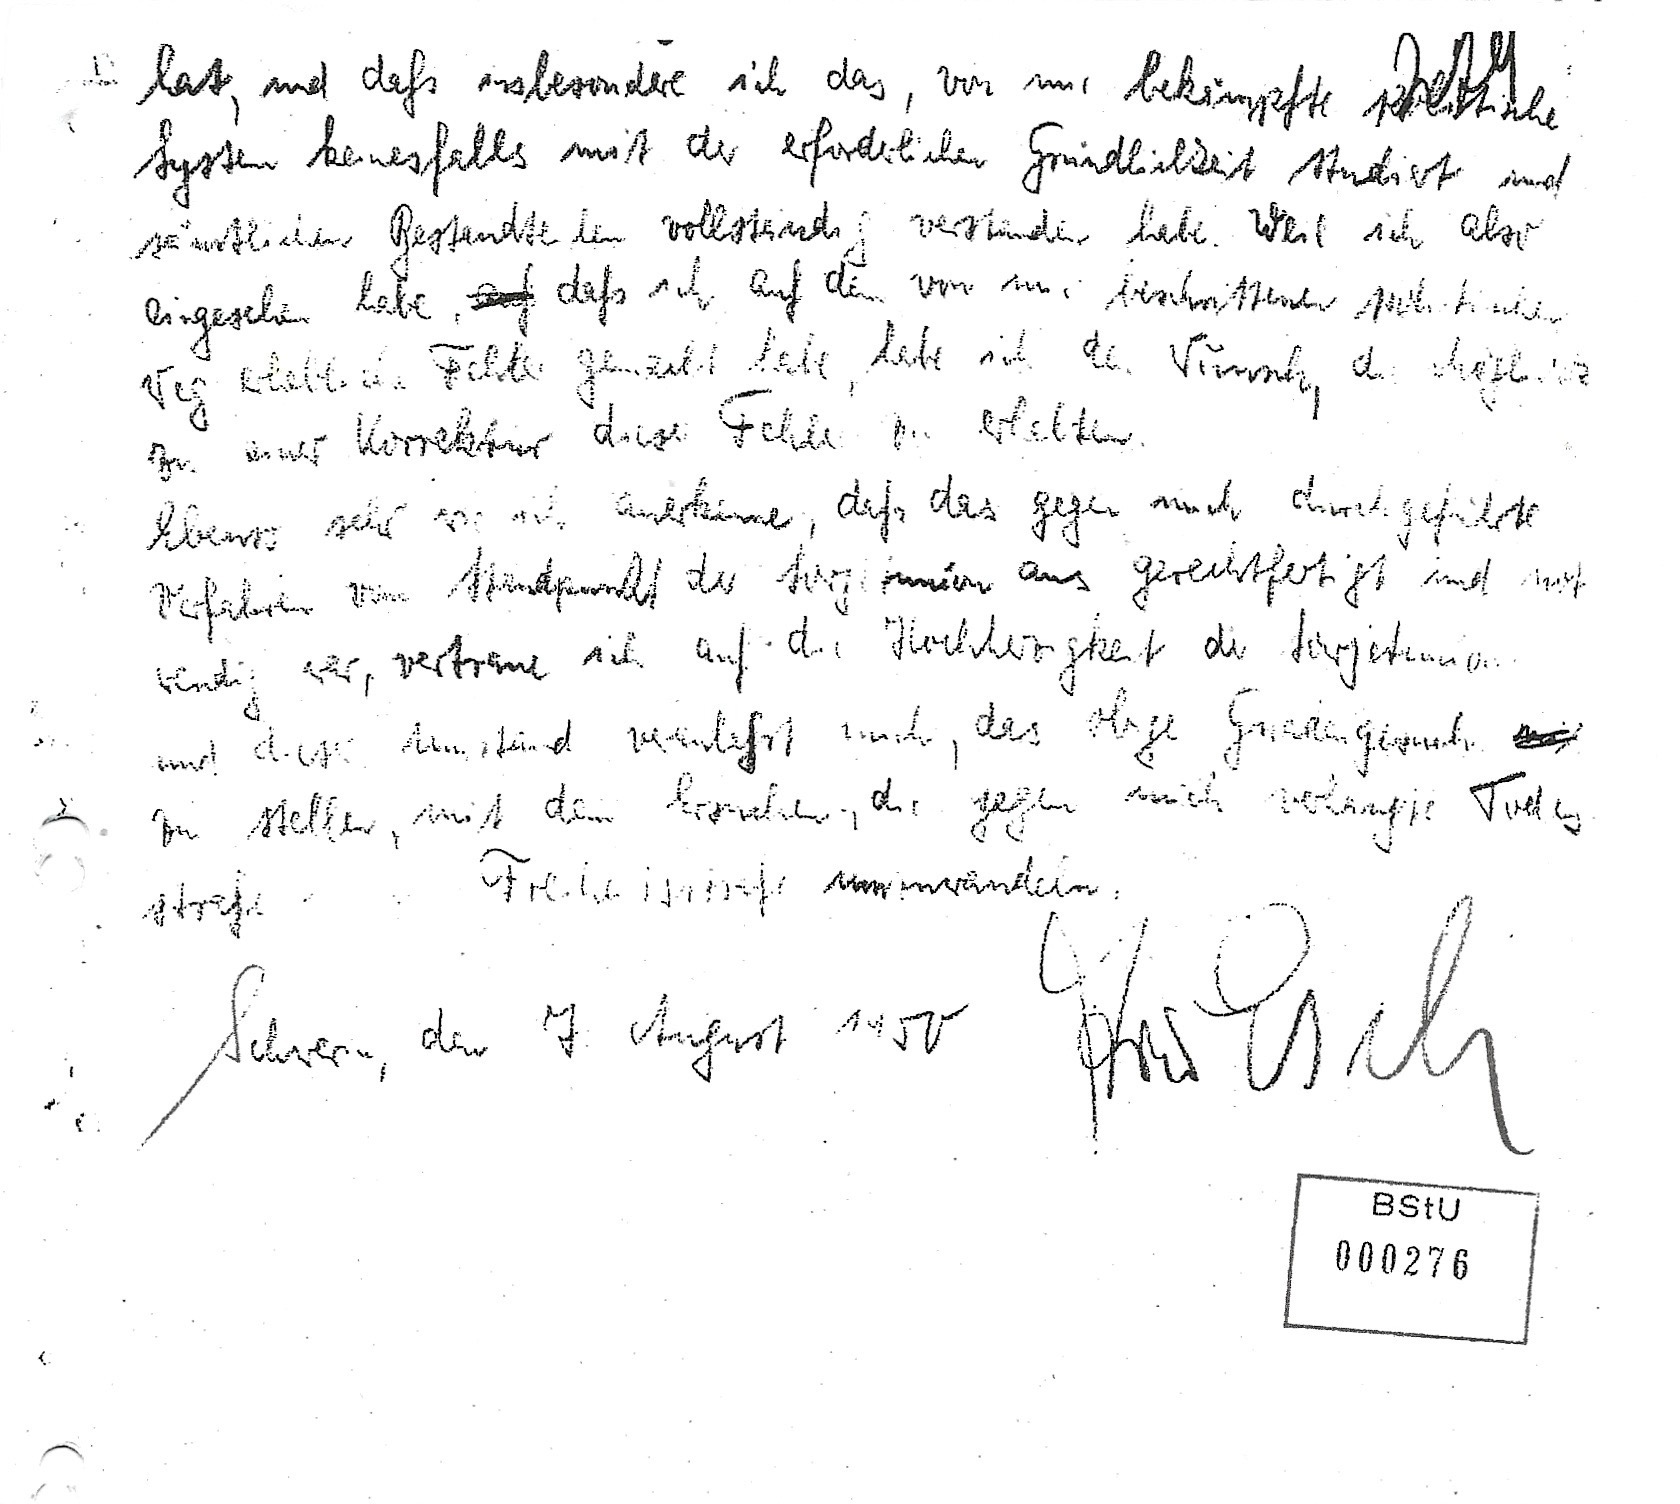 hat, und daß insbesondere ich das, von mir bekämpfte politische
System keinesfalls mit der erforderlichen Gründlichkeit studiert und
sämtlichen Bestandteilen vollständig verstanden habe. Weil ich also
eingesehen habe, daß ich auf dem von mir beschrittenen politischen
Weg erhebliche Fehler gemacht habe, habe ich den Wunsch, die
zu einer Korrektur dieser Fehler zu erhalten.
Ebenso sehr wie ich anerkenne, daß das gegen mich durchgeführte
Verfahren vom Standpunkt der Sowjetunion aus gerechtfertigt und not
wendig war, vertraue ich auf die Hochherzigkeit der Sowjetunion
und dieser Umstand veranlaßt mich, das obige Gnadengesuch
zu stellen, mit dem Ersuchen, die gegen mich verhängte Todes
strafe Freiheitsstrafe umzuwandeln.
Schwerin, den 7. August 1950 Esch
BStU
000276